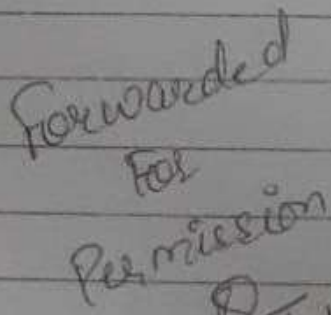 Forwarded
For
Permission